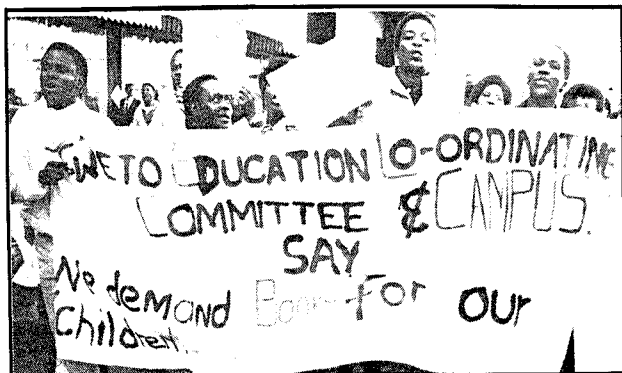 SWETO EDUCATION CO-ORDINATING
COMMITTEE & CAMPUS.
SAY
We demand For our
Children...